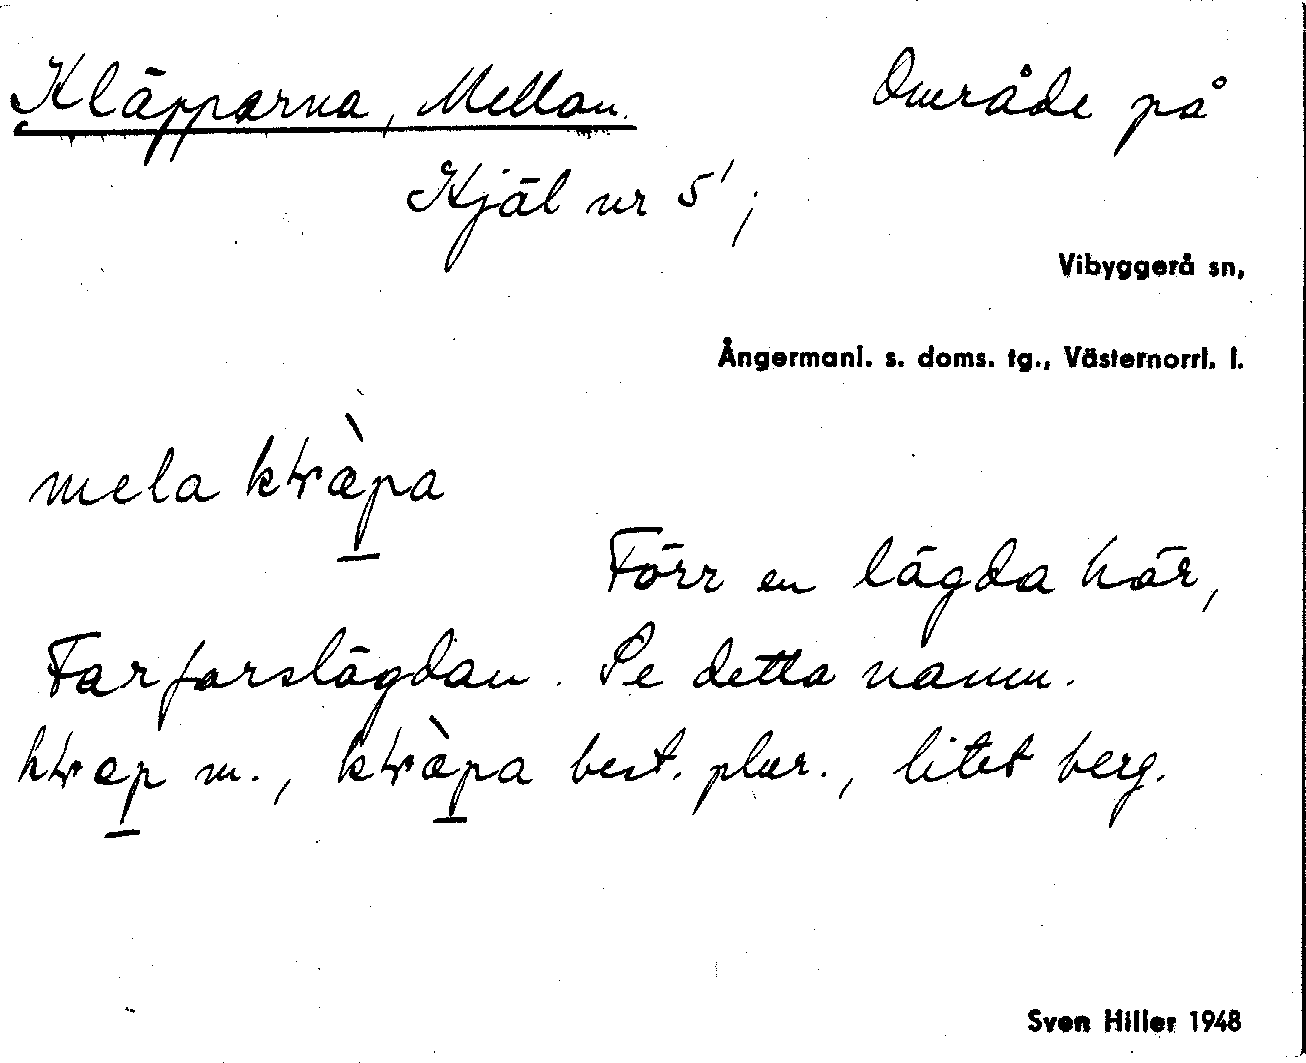 Kläpparna, Mellan. Område på
Kjäl nr 5¹;
Vibyggerå sn,
Ångermanl. s. doms. tg., Västernorrl. l.
mela
Förr en lägda här,
Farforslägdan. Se detta namn.
m., best. plur., litet berg.
Sven Hiller 1948